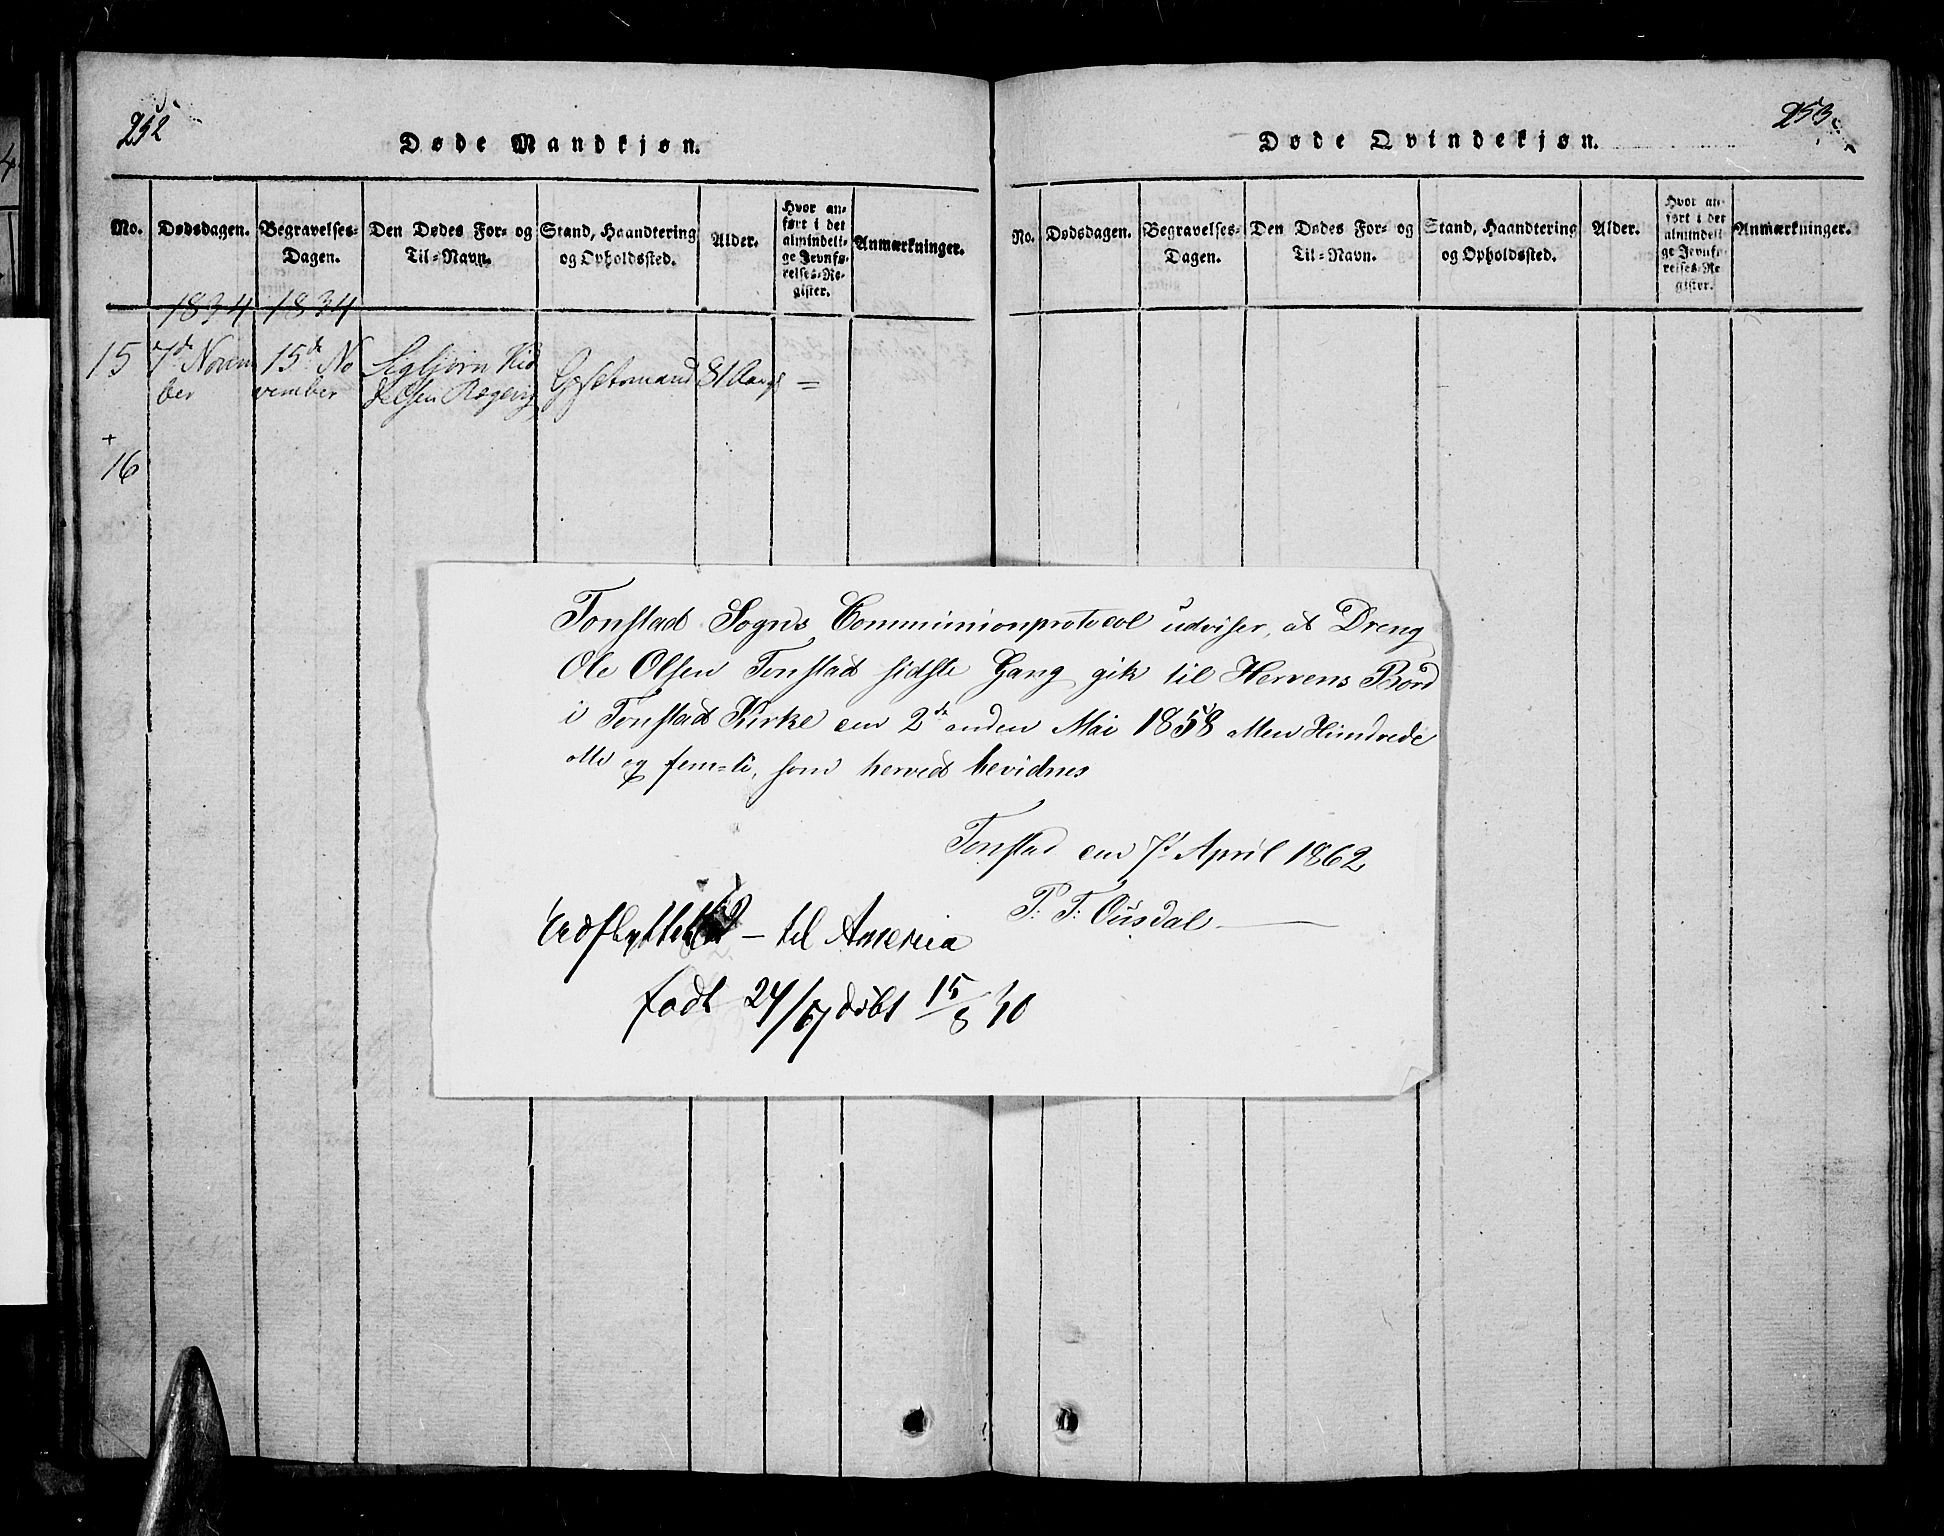 252
Døde Mandkjøn.
No. Dødsdagen. Begravelses-Dagen. Den Dødes For- og Til-Navn. Stand, Haandtering og Opholdssted. Alder. Hvor anført i det almindelige Jevnførelses-Register. Anmærkninger.
1834 1834
15 7de Novem 15de No Sigbjørn
ber vember 81 Aar =
+
16
253
Døde Qvindekjøn.
No. Dødsdagen. Begravelses-Dagen. Den Dødes For- og Til-Navn. Stand, Haandtering og Opholdssted. Alder. Hvor anført i det almindelige Jevnførelses-Register. Anmærkninger.
Tonstad Sogns Communionprotocol udviser, at Dreng
Ole Olsen Tonstad sidste Gang gik til Herrens Bord
i Tonstad Kirke den 2de anden Mai 1858 atten Hundrede
otte og femti, som herved bevidnes
Tonstad den 7de April 1862
P. T. Ousdal
Udflyttet – til America
født 24/67 døbt 15/8 40